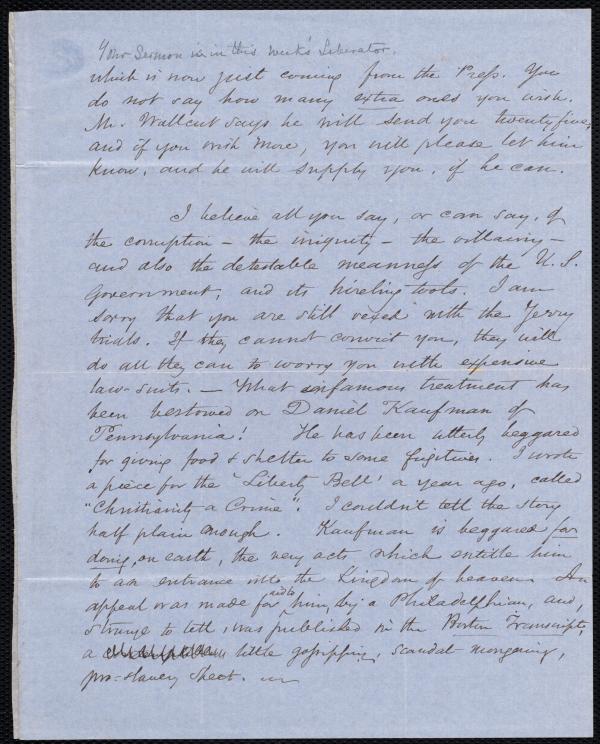 Your Sermon is in this week's Liberator,
which is now just coming from the Press. You
do not say how many extra ones you wish.
Mr. Wallcut says he will send you twenty five,
and if you wish more, you will please let him
know, and he will supply you, if he can.
I believe all you say, or can say, of
the corruption – the iniquity – the villainy –
and also the detestable meanness of the U.S.
Government, and its hireling tools. I am
sorry that you are still vexed with the Jerry
trials. If they cannot convict you, they will
do all they can to worry you with expensive
law-suits. – What infamous treatment has
been bestowed on Daniel Kaufman of
Pennsylvania! He has been utterly beggared
for giving food & shelter to some fugitives. I wrote
a piece for the 'Liberty Bell' a year ago, called
"Christianity a Crime". I couldn't tell the story
half plain enough. Kaufman is beggared for
doing, on earth, the very acts which entitle him
to an entrance into the Kingdom of heaven. An
appeal was made for aid to him, by a Philadelphian, and,
strange to tell, was published in the Boston Transcript,
a little gossipping, scandal-mongering,
pro-slavery sheet.